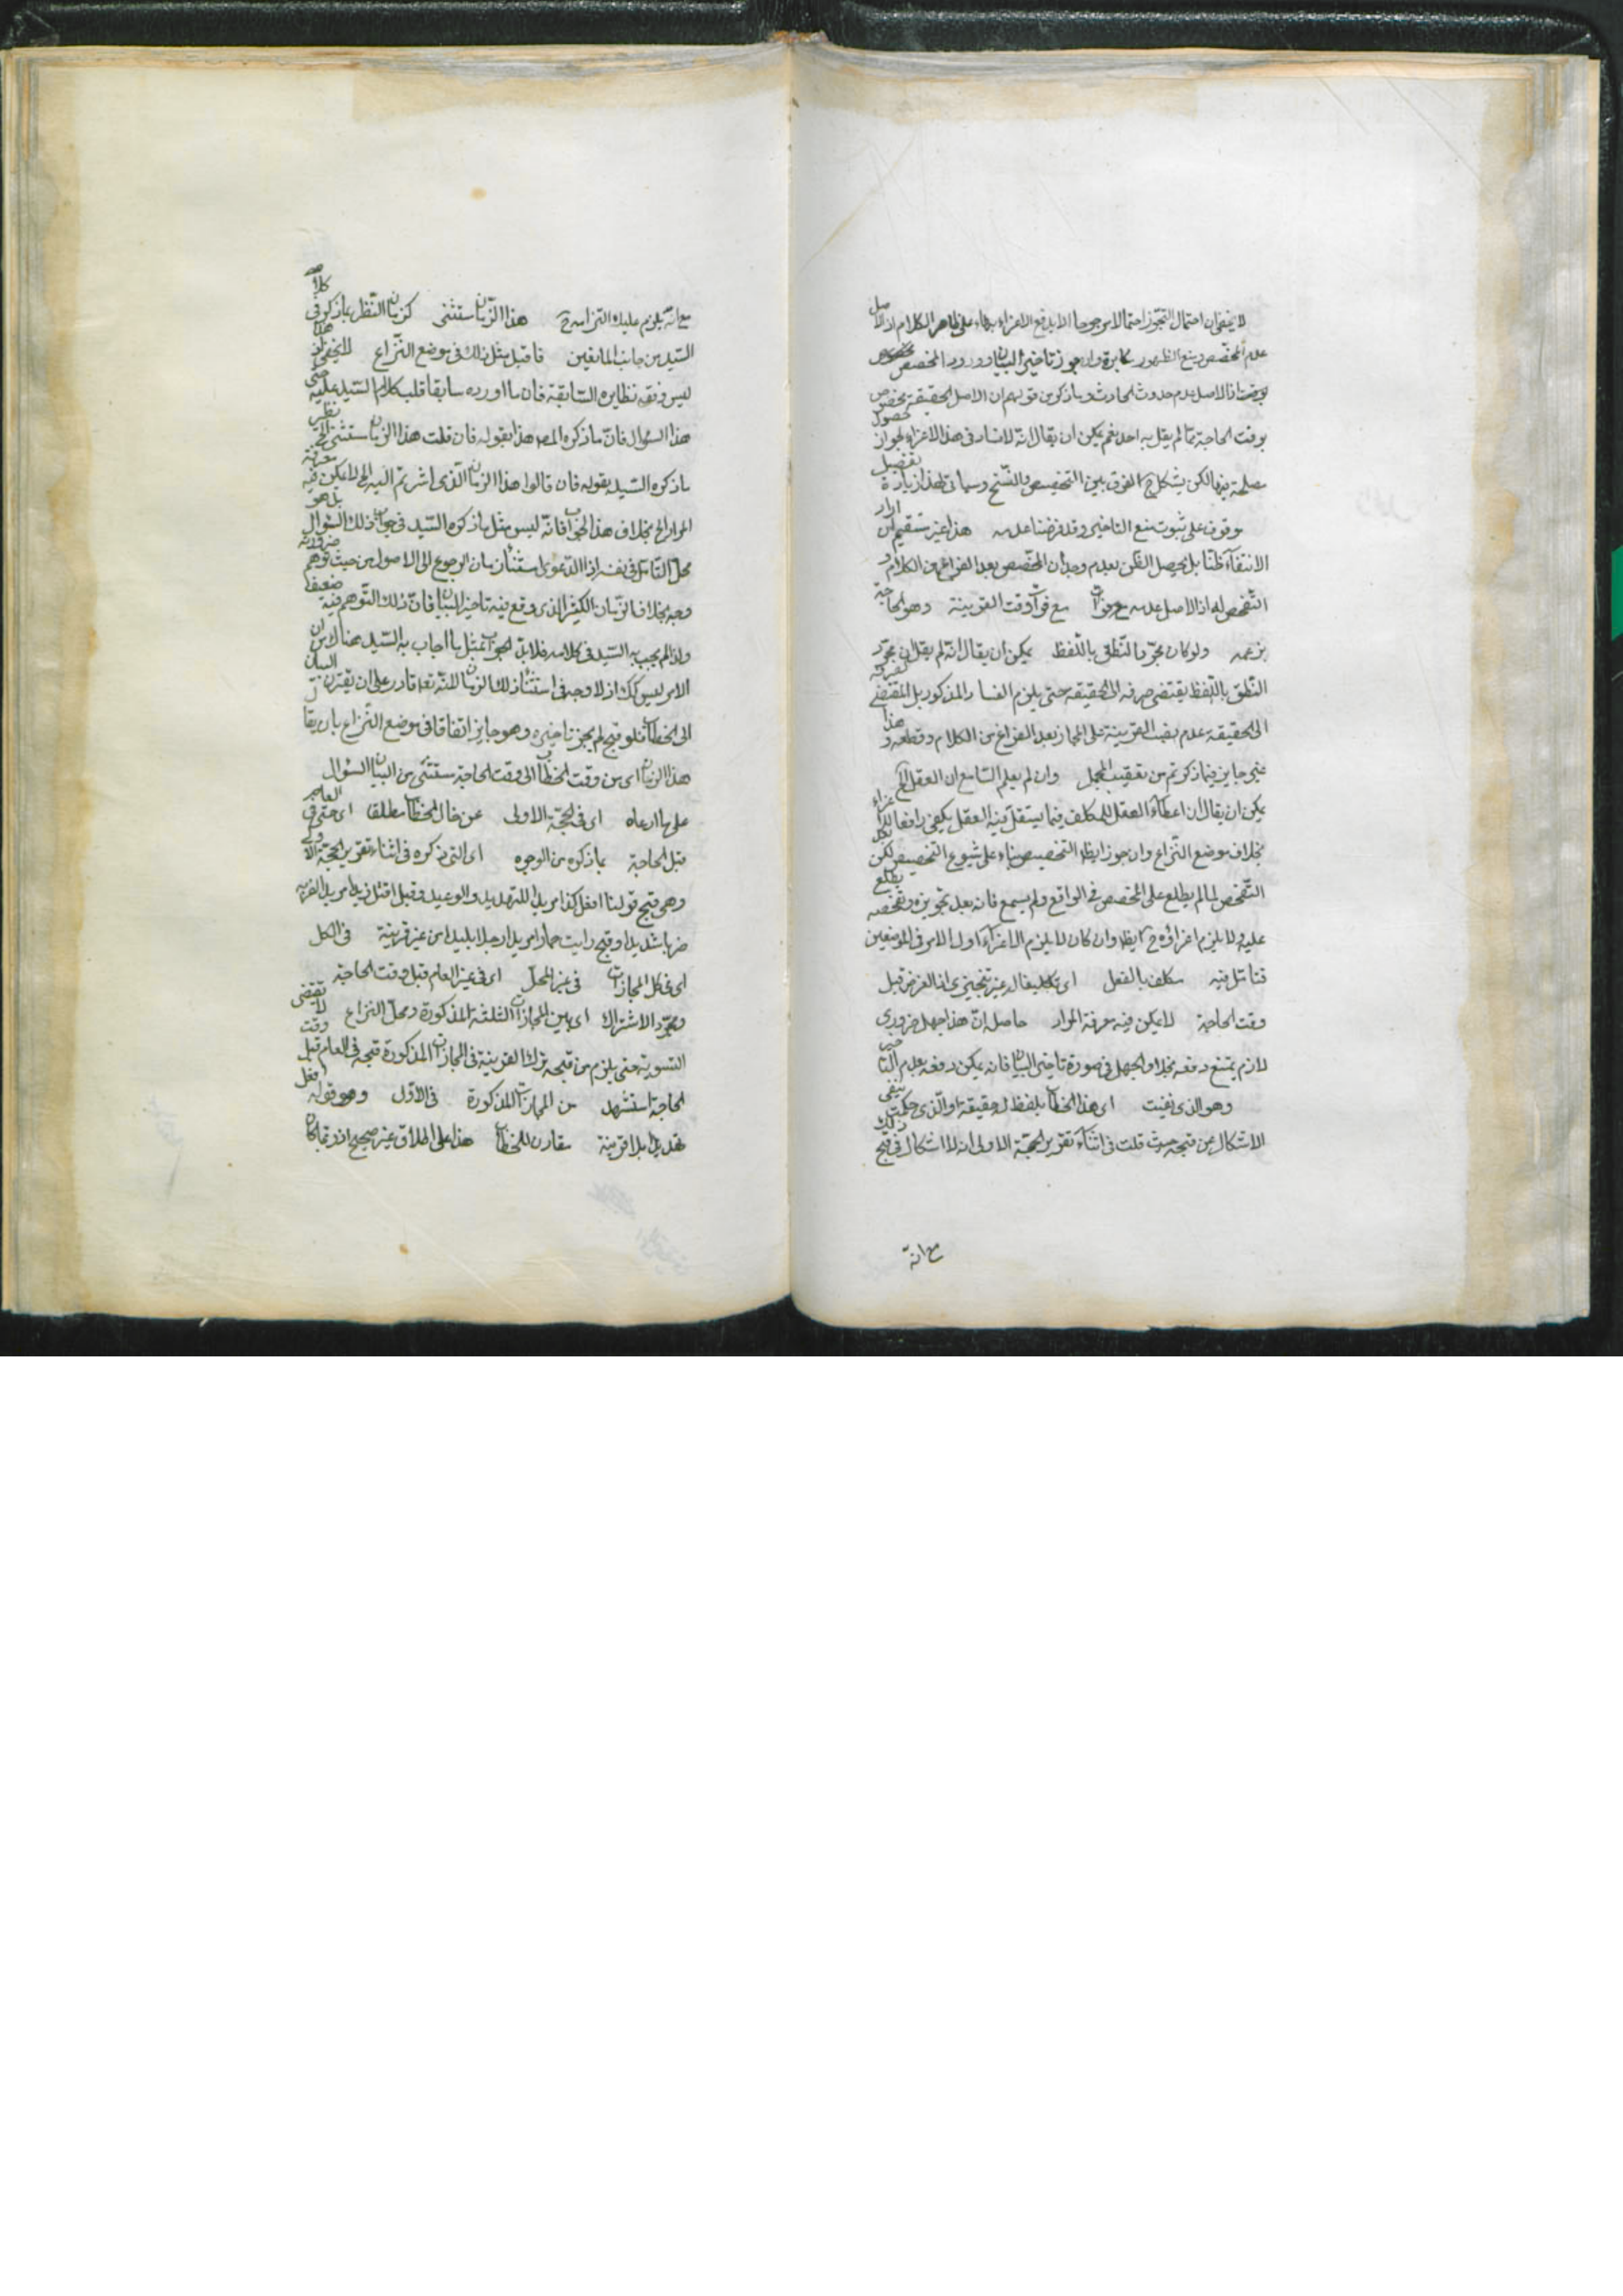 لا يخفى ان احتمال التجوز احتمالا مرجوحا لا يدفع الاغراء بناء على ظاهر الكلام اذ الاصل
عدم المخصص ومنع الظهور مكابرة وان جوز تاخير البيان وورود المخصص
بوقت اذ الاصل عدم حدوث الحادث وما ذكر من قولهم ان الاصل الحقيقة
بوقت الحاجة مما لم يقل به احد نعم يكن ان يقال انه لا فساد فى هذا الاغراء لجواز حصول
مصلحة فيه لكن يشكل ح الفرق بين التخصيص والنسخ وسياتى لهذا زيادة تفصيل
موقوف على ثبوت منع التاخير وقد فرضنا عدمه هذا غير مستقيم ان اراد
الانتفاء ظنا بل يحصل الظن بعدم وجدان المخصص بعد الفراغ من الكلام و
التفحص له اذ الاصل عدمه مع فوات وقت القرينة وهو الحاجة
بزعمه ولو كان مجرد النطق باللفظ يمكن ان يقال انه لم يقل ان مجرد
النطق باللفظ يقتضى صرفه الى الحقيقة حتى يلزم الفساد المذكور بل المقتضى
الى الحقيقة عدم نصب القرينة على المجاز بعد الفراغ من الكلام وقطعه و هذا
غير جايز فيما ذكرتم من تعقيب المجمل وان لم يعلم السامع ان العقل الخ
يمكن ان يقال ان اعطاء العقل للمكلف فيما يستقل فيه العقل يكفى رافعا للاغراء
بخلاف موضع النزاع وان جوز ايظا التخصيص بناء على شيوع التخصيص لكن
التفحص لما لم يطلع على المخصص فى الواقع ولم يسمع فانه بعد تجويزه وتفحصه يطلع
عليه ولا يلزم اغراؤه ح ايظا وان كان لا يلزم الاغراء اول الامر فى الموضعين
فتامل فيه مكلف بالفعل اى تكليفا غير تنجيزى اذ الغرض قبل
وقت الحاجة لا يمكن فيه معرفة المراد حاصله ان هذا جهل ضرورى
لازم يمتنع دفعه بخلاف الجهل فى صورة تاخير البيان فانه يمكن دفعه بعدم التاخير
وهو الذى نفيت اى هذا الخطاب بلفظ له حقيقة او الذى حكمت بنفى
الاشكال عن قبحه حيث قلت فى اثناء تقرير الحجة الاولى انه لا اشكال فى قبح ذلك
مع انه
مع انه يلزم عليك التزامه ح هذا الزمان مستثنى كزمان النظر بما ذكر فى كلام
السيد من جانب المانعين فاقبل مثل ذلك فى موضع النزاع لا يخفى ان هذا
ليس وفق نظايره السابقة فان ما اورده سابقا قلب كلام السيد عليه
هذا السؤال فان ما ذكره المص هذا بقوله فان قلت هذا الزمان مستثنى الخ نظير
ما ذكره السيد بقوله فان قالوا هذا الزمان الذى اشرتم اليه الخ لا يمكن فيه معرفة
المراد الخ بخلاف هذا الجواب فانه ليس مثل ما ذكره السيد فى جواب ذلك السؤال بل هو
محل التامل فى نفسه اذ الدعوى استثناء زمان الرجوع الى الاصول من حيث توهم ضرورية
وجه بخلاف الزمان الكثير الذى وقع فيه تاخير البيان فان ذلك التوهم فيه
ولذا لم يجب به السيد فى كلامه فلا بد لجواب بمثل ما اجاب به السيد هناك من ان
الامر ليس كك اذ لا وجه فى استثناء ذلك الزمان للنه تعا قادر على ان يقترن البيان
الى الخطاب فلو قبح لم يجز تاخيره وهو جايز اتفاقا فى موضع النزاع بان يقال
هذا الزمان اى من وقت الخطاب الى وقت الحاجة مستثنى من البيان السؤال
على ما ادعاه اى فى الحجة الاولى عن حال الخطاب مطلقا اى حتى فى العام
قبل الحاجة بما ذكره من الوجوه اى التى ذكره فى اثناء تقرير الحجة الاولى
وهى قبح قولنا افعل كذا مريدا للتهديد والوعيد وقبل اقتل زيدا مريدا لضربه
ضربا شديدا وقبح رايت حمارا مريدا رجلا بليدا من غير قرينة فى الكل
اى فى كل المجازات فى غير المحل اى فى غير العام قبل وقت الحاجة
ومجرد الاشتراك اى بين المجازات الثلثة المذكورة ومحل النزاع لا يقتضى
التسوية حتى يلزم من قبحه ترك القرينة فى المجازات المذكورة قبحه فى العام قبل وقت
الحاجة استشهد من المجازات المذكورة فى الاول وهو قوله افعل
تهديدا بلا قرينة مقارن للخطاب هذا على اطلاق غير صحيح اذ ربما كان